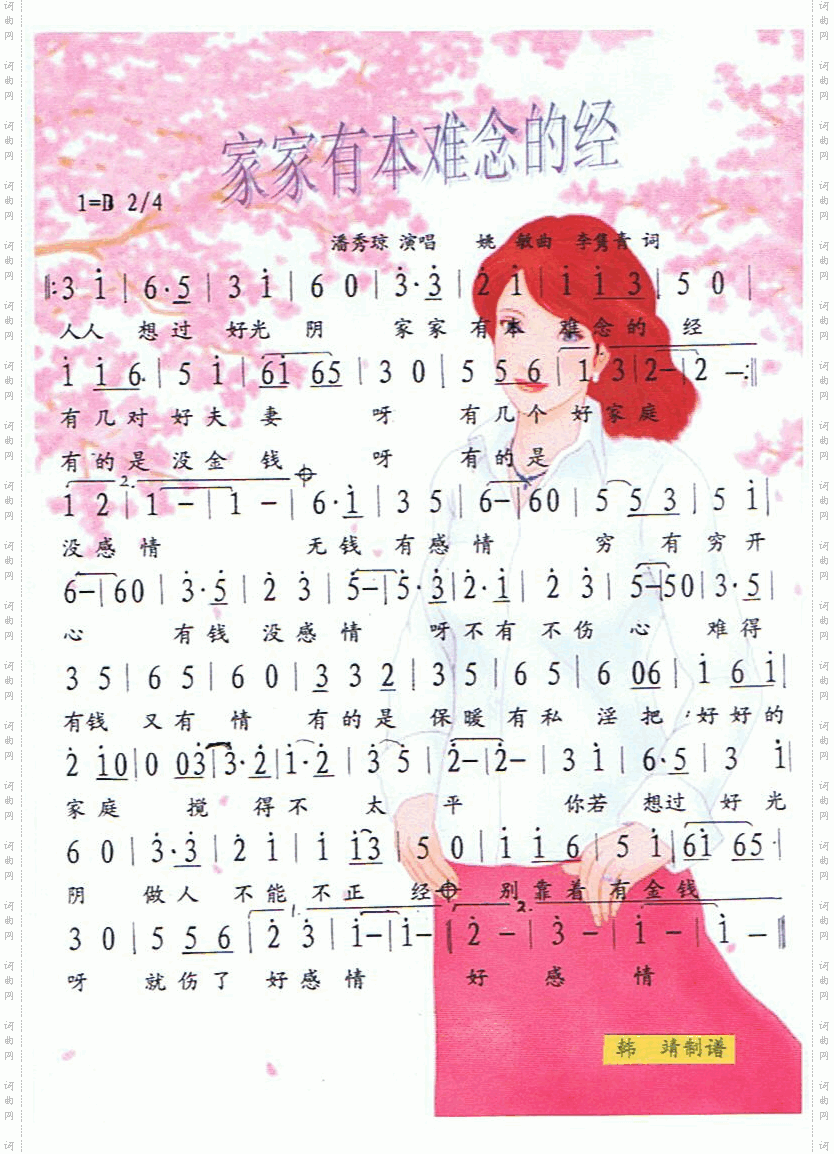 家家有本难念的经
1=D 2/4
潘秀琼 演唱 姚 敏曲 李隽青 词
‖:3 i̇ | 6·5 | 3 i̇ | 6 0 | 3̇·3̇ | 2̇ i̇ | i̇ i̇ 3 | 5 0 |
人人 想过 好光 阴 家家 有本 难念的 经
i̇ i̇ 6· | 5 i̇ | 6i̇ 65 | 3 0 | 5 5 6 | 1. 1 3 | 2— | 2 —:‖
有几对 好夫 妻 呀 有几个 好家庭
有的是 没金 钱 呀 有的是
1 2 | 2. 1 — | 1 — | 6·i̇ | 3 5 | 6— | 60 | 5 5 3 | 5 i̇ |
没感 情 无钱 有感 情 穷 有 穷开
6— | 60 | 3̇·5̇ | 2̇ 3̇ | 5̇— | 5̇·3̇ | 2̇·i̇ | 2̇ 3̇ | 5— | 50 | 3·5 |
心 有钱 没感 情 呀不有 不伤 心 难得
3 5 | 6 5 | 6 0 | 3 3 2 | 3 5 | 6 5 | 6 06 | i̇ 6 i̇ |
有钱 又有 情 有的是 保暖 有私 淫 把 好好的
2̇ i̇0 | 0 03̇ | 3̇·2̇ | i̇·2̇ | 3̇ 5 | 2̇— | 2̇— | 3 i̇ | 6·5 | 3 i̇ |
家庭 搅 得不 太 平 你若 想过 好光
6 0 | 3̇·3̇ | 2̇ i̇ | i̇ i̇3 | 5 0 | i̇ i̇ 6 | 5 i̇ | 6i̇ 65 |
阴 做人 不能 不正 经 别靠着 有金钱
3 0 | 5 5 6 | 1. 2̇ 3̇ | i̇— | i̇— | 2. 2̇ — | 3̇ — | i̇ — | i̇ — ‖
呀 就伤了 好感情 好 感 情
韩 靖制谱
词曲网